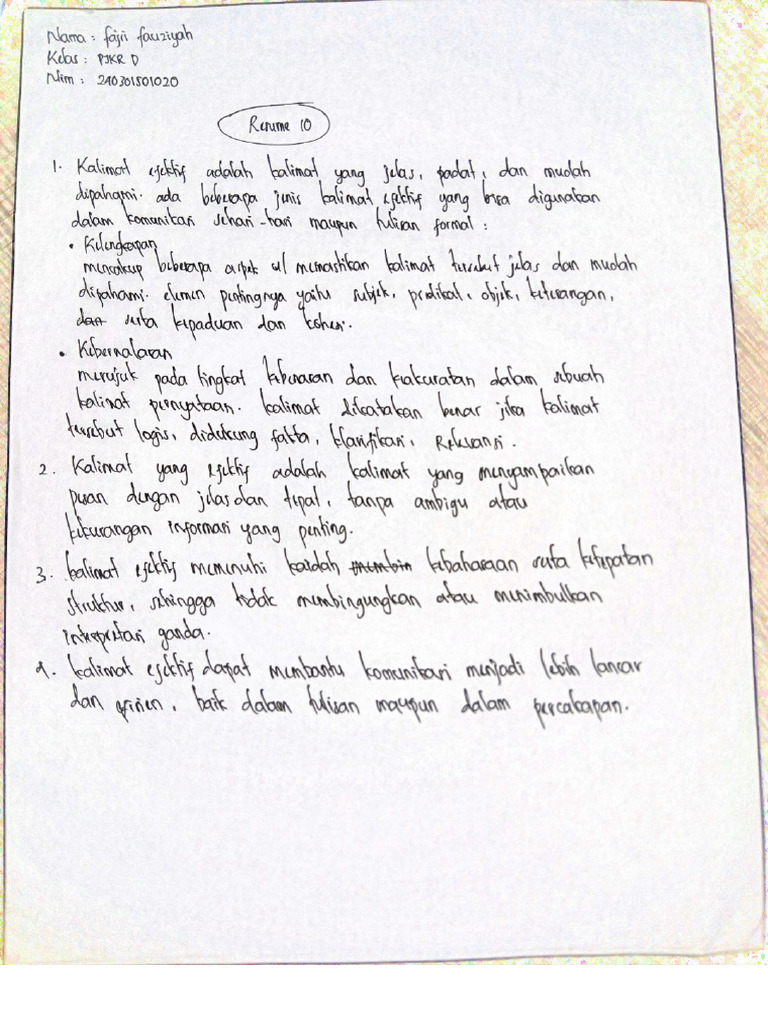 Nama : fajri fauziyah
Kelas : PJKR D
Nim : 240301501020
Resume 10
1. Kalimat efektif adalah kalimat yang jelas, padat, dan mudah
dipahami. ada beberapa jenis kalimat efektif yang bisa digunakan
dalam komunikasi sehari-hari maupun tulisan formal :
• Kelengkapan
mencakup beberapa aspek u/ memastikan kalimat tersebut jelas dan mudah
dipahami. elemen pentingnya yaitu subjek, predikat, objek, keterangan,
dan serta kepaduan dan kohesi.
• Kebernalaran
merujuk pada tingkat kebenaran dan keakuratan dalam sebuah
kalimat pernyataan. kalimat dikatakan benar jika kalimat
tersebut logis, didukung fakta, klarifikasi, Relevansi.
2. Kalimat yang efektif adalah kalimat yang menyampaikan
pesan dengan jelas dan tepat, tanpa ambigu atau
kekurangan informasi yang penting.
3. kalimat efektif memenuhi kaidah membin kebahasaan serta ketepatan
struktur, sehingga tidak membingungkan atau menimbulkan
interpretasi ganda.
4. kalimat efektif dapat membantu komunikasi menjadi lebih lancar
dan efisien, baik dalam tulisan maupun dalam percakapan.